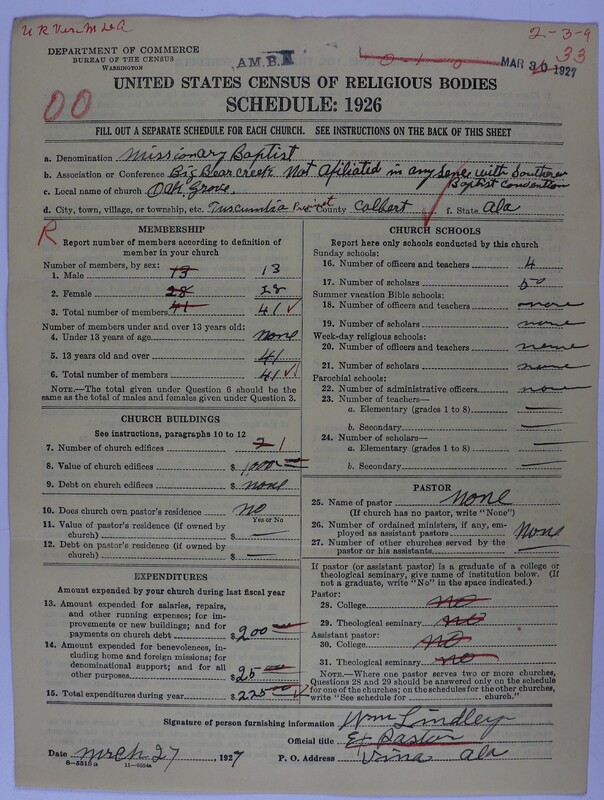 2-3-9
33
DEPARTMENT OF COMMERCE
BUREAU OF THE CENSUS
WASHINGTON
A.M.B.
MAR 30 1927
UNITED STATES CENSUS OF RELIGIOUS BODIES
SCHEDULE: 1926
00
FILL OUT A SEPARATE SCHEDULE FOR EACH CHURCH. SEE INSTRUCTIONS ON THE BACK OF THIS SHEET
a. Denomination Missionary Baptist
b. Association or Conference Big Bear creek Not Afiliated in any sene with Southern
Baptist Convention
c. Local name of church Oak Grove.
d. City, town, village, or township, etc. Tuscumbia County Colbert f. State Ala
R
MEMBERSHIP
Report number of members according to definition of
member in your church
Number of members, by sex:
1. Male 13 13
2. Female 28 28
3. Total number of members 41 41
Number of members under and over 13 years old:
4. Under 13 years of age none
5. 13 years old and over 41
6. Total number of members 41
NOTE.—The total given under Question 6 should be the
same as the total of males and females given under Question 3.
CHURCH BUILDINGS
See instructions, paragraphs 10 to 12
7. Number of church edifices 1
8. Value of church edifices $ 1000
9. Debt on church edifices $ none
10. Does church own pastor's residence no
Yes or No
11. Value of pastor's residence (if owned by
church) $ —
12. Debt on pastor's residence (if owned by
church) $ —
EXPENDITURES
Amount expended by your church during last fiscal year
13. Amount expended for salaries, repairs,
and other running expenses; for im-
provements or new buildings; and for
payments on church debt $ 200
14. Amount expended for benevolences,
including home and foreign missions; for
denominational support; and for all
other purposes $ 25
15. Total expenditures during year $ 225
CHURCH SCHOOLS
Report here only schools conducted by this church
Sunday schools:
16. Number of officers and teachers 4
17. Number of scholars 50
Summer vacation Bible schools:
18. Number of officers and teachers none
19. Number of scholars none
Week-day religious schools:
20. Number of officers and teachers none
21. Number of scholars none
Parochial schools:
22. Number of administrative officers none
23. Number of teachers—
a. Elementary (grades 1 to 8) —
b. Secondary —
24. Number of scholars—
a. Elementary (grades 1 to 8) —
b. Secondary —
PASTOR
25. Name of pastor none
(If church has no pastor, write "None")
26. Number of ordained ministers, if any, em-
ployed as assistant pastors None
27. Number of other churches served by the
pastor or his assistants —
If pastor (or assistant pastor) is a graduate of a college or
theological seminary, give name of institution below. (If
not a graduate, write "No" in the space indicated.)
Pastor:
28. College no
29. Theological seminary no
Assistant pastor:
30. College no
31. Theological seminary no
NOTE.—Where one pastor serves two or more churches,
Questions 28 and 29 should be answered only on the schedule
for one of the churches; on the schedules for the other churches,
write "See schedule for church."
Signature of person furnishing information Wm Lindley
Official title Ex Pastor
Date Mrch 27, 1927 P. O. Address Vina Ala
8-5518a 11-9554a